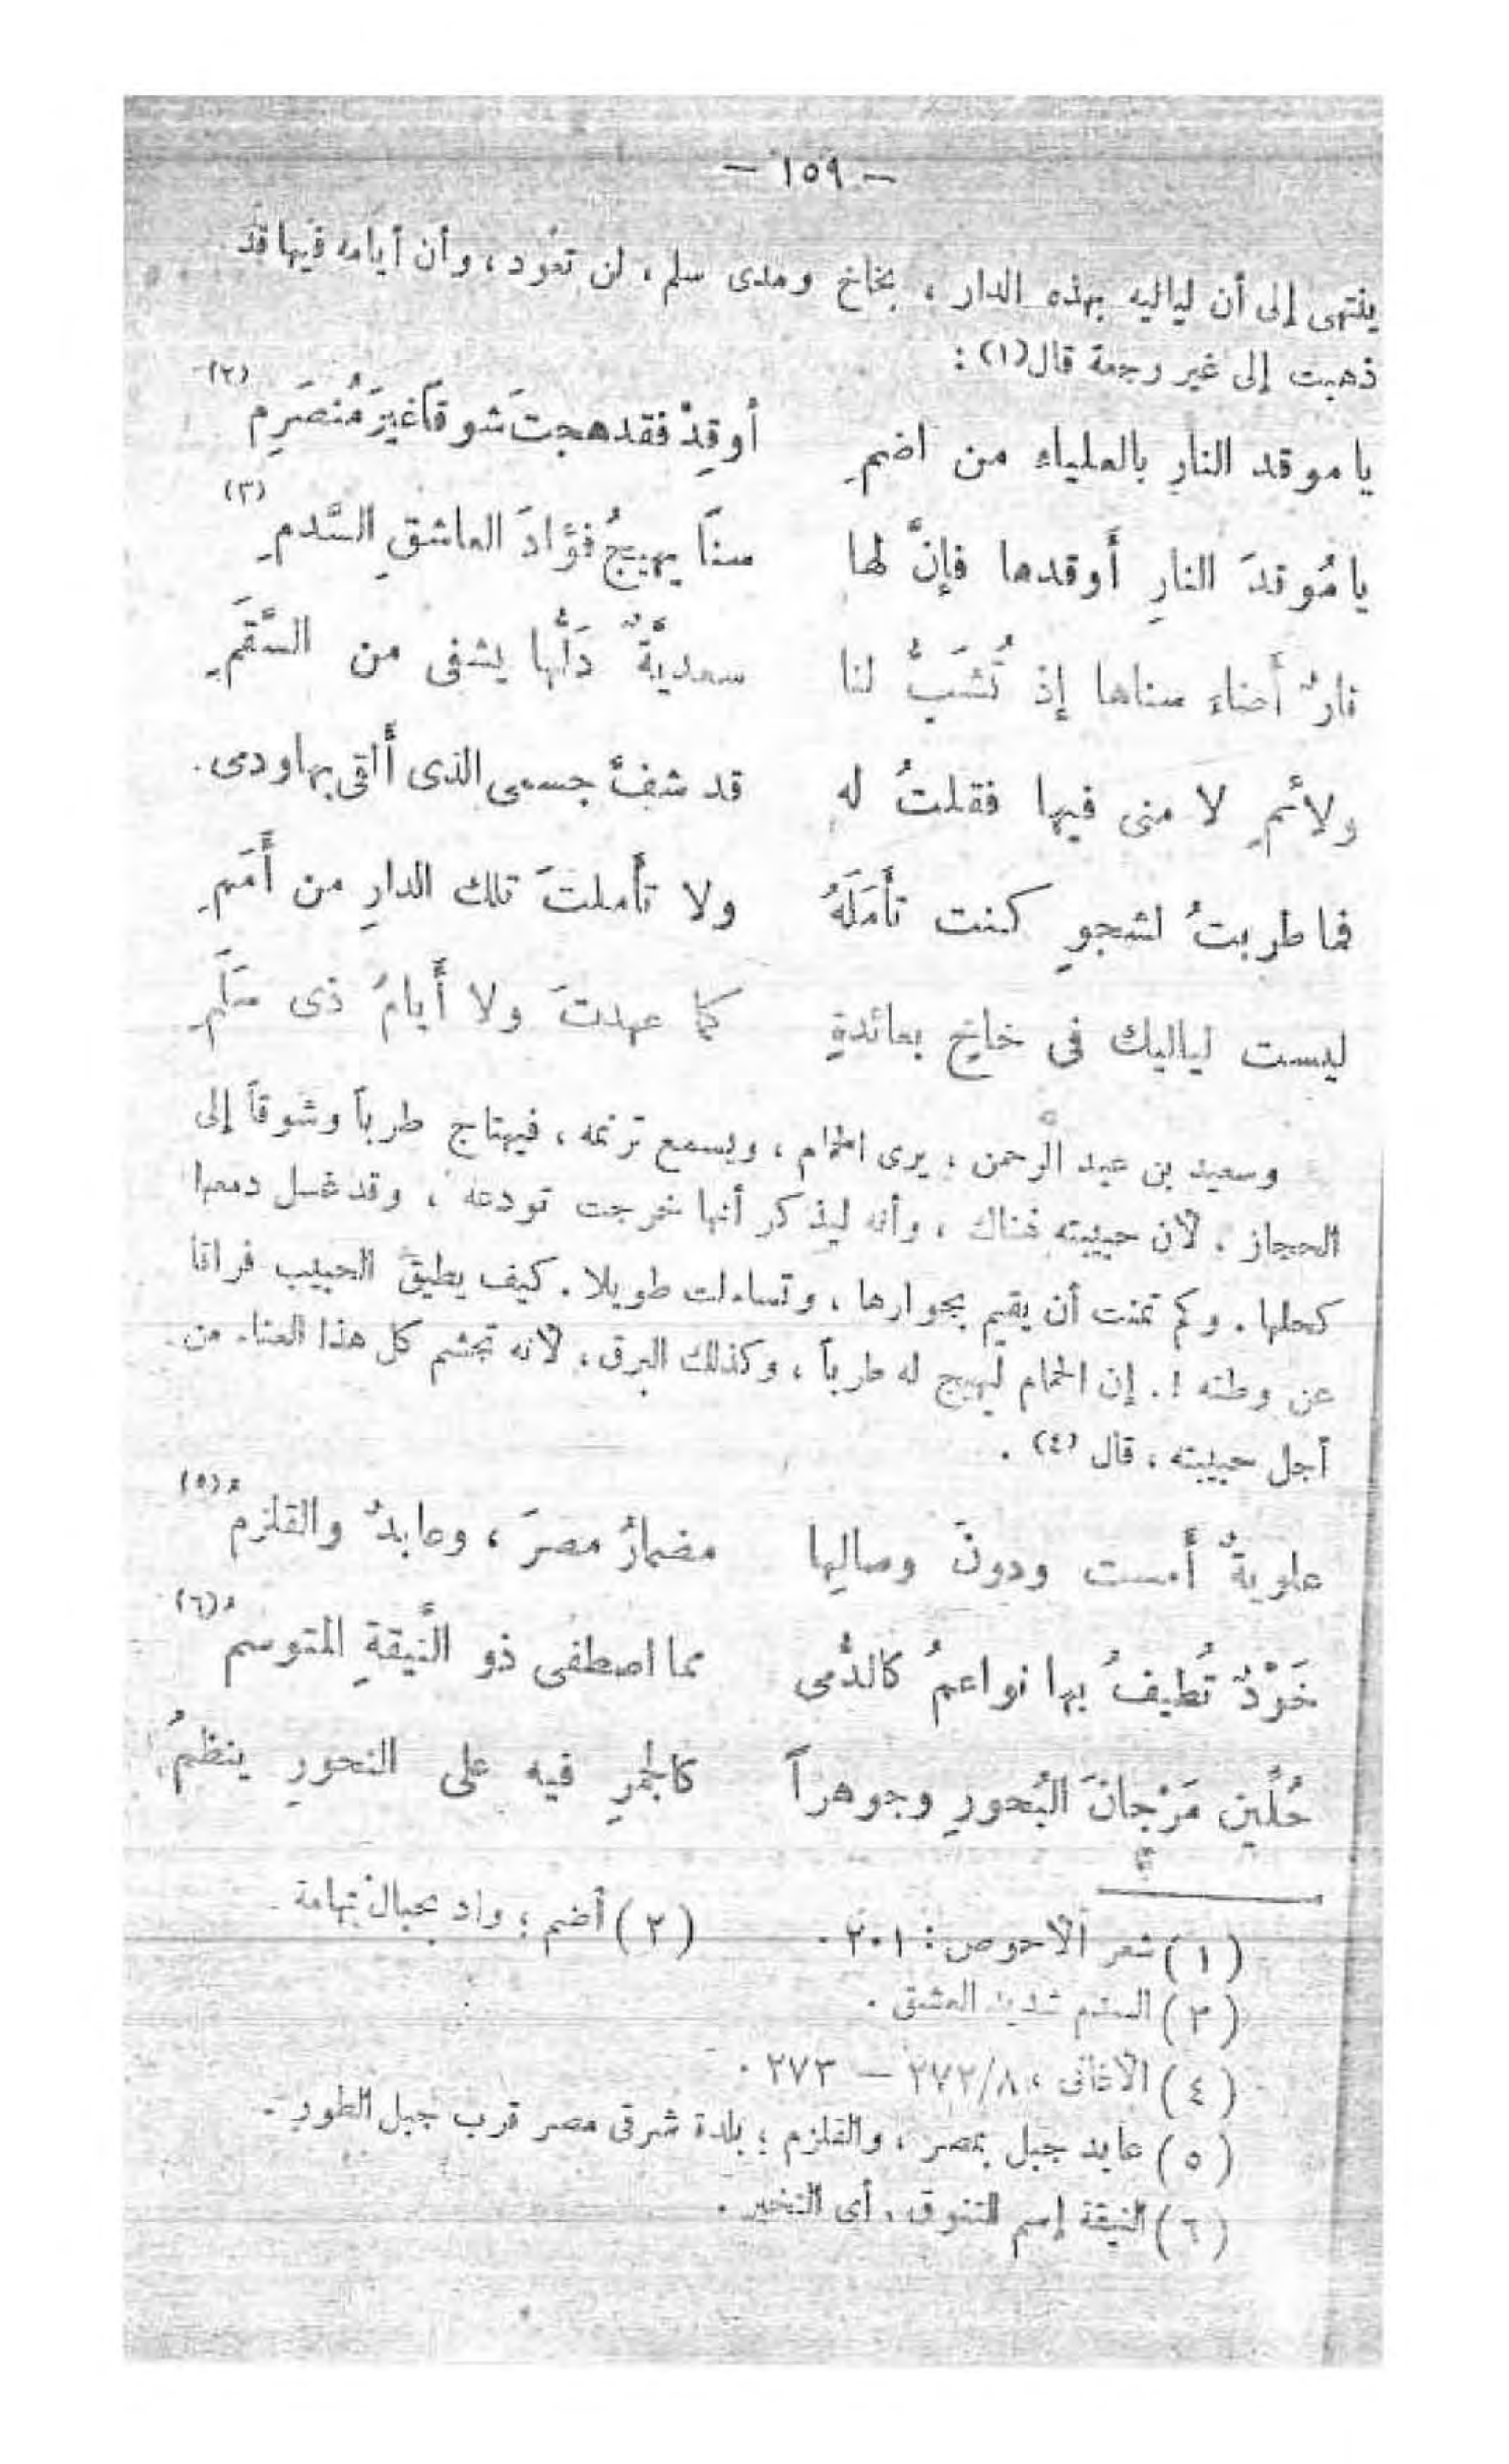 — ١٥٩ —
ينتهى إلى أن لياليه بهذه الدار ، بخاخ ومدى سلم ، لن تعود ، وأن أيامه فيها قد
ذهبت إلى غير رجعة قال(١) :
يا موقد النارِ بالعلياء من اضمِ أوقِدْ فقد هجتَ شوقاً غيرَ مُنصَرِمِ (٢)
يا مُوقدَ النارِ أَوقدها فإنَّ لها سناً يهيجُ فؤادَ العاشقِ السَّدمِ (٣)
نارٌ أضاء سناها إذْ تُشَبُّ لنا سعديَّةٌ دَلُّها يشفى من السَّقَمِ
ولائمِ لا منى فيها فقلتُ له قد شفَّ جسمى الذى أَلقى بها ودمى .
فما طربتُ لشجوٍ كنت تأْمَلَهُ ولا تأَملتَ تلك الدارِ من أَمَمِ
ليست لياليك فى خاخٍ بعائدةٍ كما عهدتَ ولا أَيامُ ذى سَلَمِ
وسعيد بن عبد الرحمن ، يرى الحمام ، ويسمع ترنمه ، فيهتاج طرباً وشوقاً إلى
الحجاز . لأن حبيبته هناك ، وأنه ليذكر أنها خرجت تودعه ، وقد غسل دمعها
كحلها . وكم تمنت أن يقيم بجوارها ، وتساءلت طويلا . كيف يطيق الحبيب فراقا
عن وطنه ! . إن الحمام ليهيج له طرباً ، وكذلك البرق ، لأنه تجشم كل هذا العناء من
أجل حبيبته ، قال (٤) .
علويةٌ أَمست ودونَ وصالِها مضمارُ مصرَ ، وعابدٌ والقلزمُ (٥)
خَرْدٌ تُطيفُ بها نواعمُ كالدُّمى مما اصطفى ذو النَّيقةِ المتوسمُ (٦)
حُلِّين مَرْجانَ البُحورِ وجوهراً كالجمرِ فيه على النحورِ ينظمُ
(١) شعر الأحوص : ٢٠١ . (٢) أضم ؛ واد بجبال تهامة .
(٣) السدم شديد العشق .
(٤) الأغانى ، ٢٧٢/٨ — ٢٧٣ .
(٥) عابد جبل بمصر ، والقلزم ؛ بلدة شرقى مصر قرب جبل الطور .
(٦) النيقة إسم للتنوق ، أى التخير .